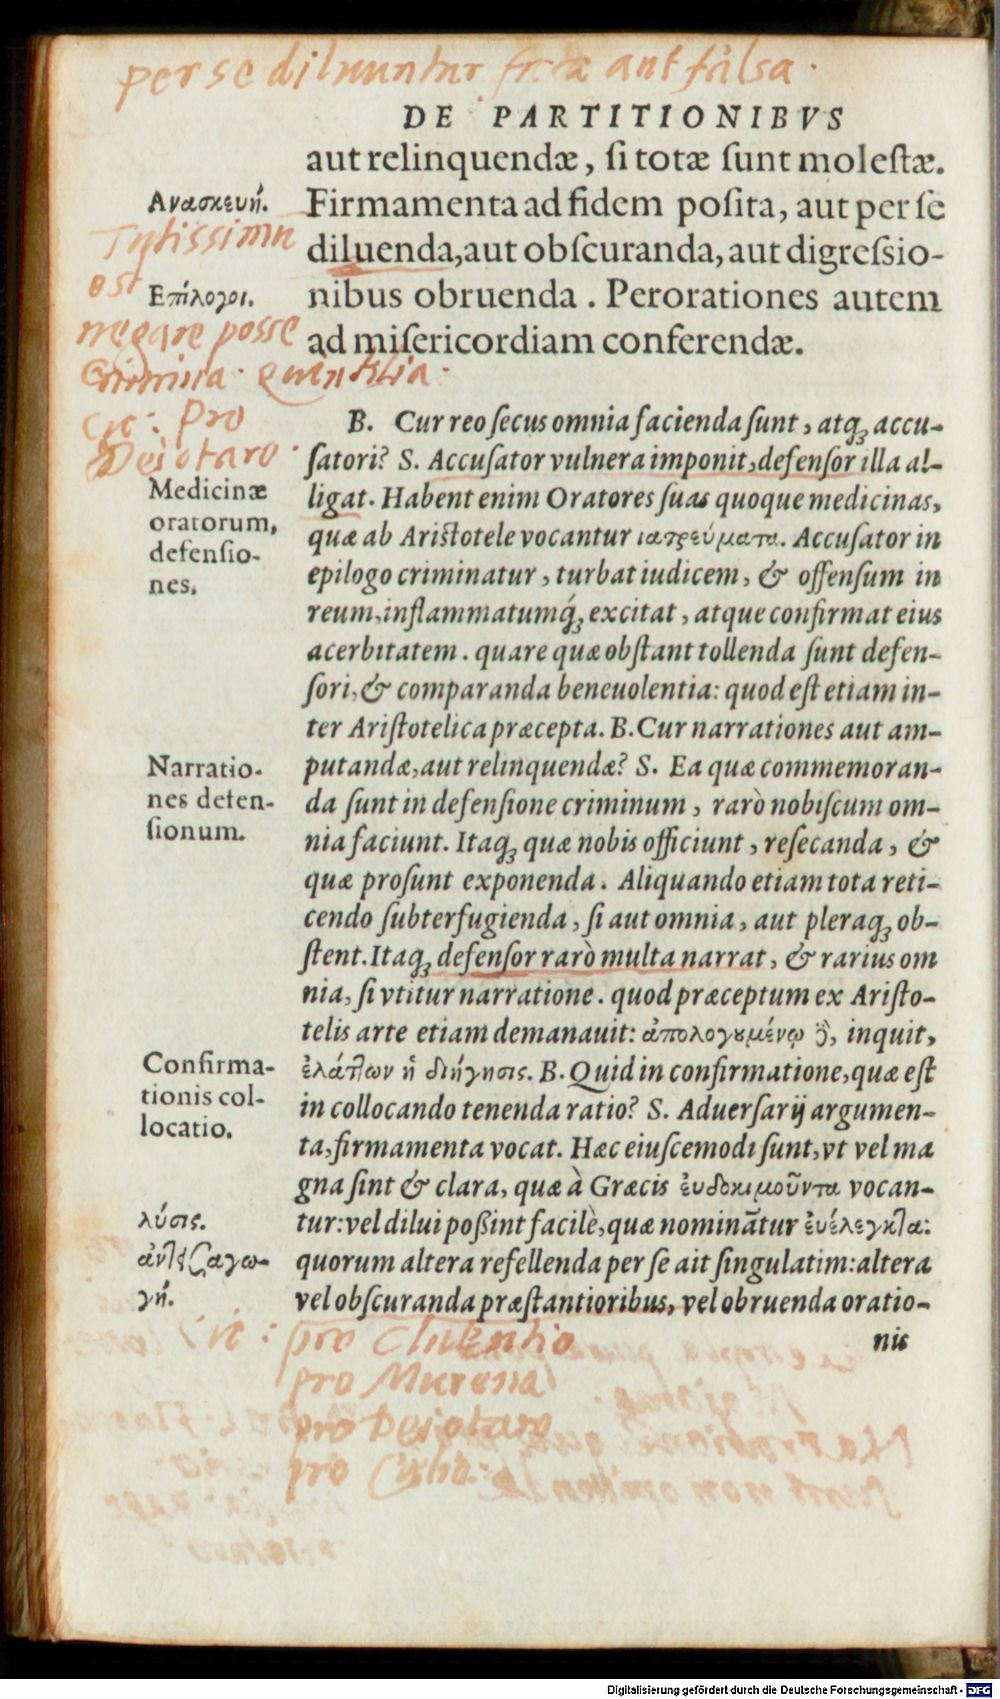 per se diluuntur ficta aut falsa.
DE PARTITIONIBVS
aut relinquendæ, ſi totæ ſunt moleſtæ.
Firmamenta ad fidem poſita, aut per ſe
diluenda, aut obſcuranda, aut digreſsio-
nibus obruenda. Perorationes autem
ad miſericordiam conferendæ.
Ανασκευή.
Tutissimu
est
Επίλογοι.
negare posse
Crimina. quintilia.
Cic: Pro
Deiotaro.
B. Cur reo ſecus omnia facienda ſunt, atq; accu-
ſatori? S. Accuſator vulnera imponit, defenſor illa al-
ligat. Habent enim Oratores ſuas quoque medicinas,
quæ ab Ariſtotele vocantur ιατρεύματα. Accuſator in
epilogo criminatur, turbat iudicem, & offenſum in
reum, inflammatumq́; excitat, atque confirmat eius
acerbitatem. quare quæ obſtant tollenda ſunt defen-
ſori, & comparanda beneuolentia: quod eſt etiam in-
ter Ariſtotelica præcepta. B. Cur narrationes aut am-
putandæ, aut relinquendæ? S. Ea quæ commemoran-
da ſunt in defenſione criminum, rarò nobiſcum om-
nia faciunt. Itaq; quæ nobis officiunt, reſecanda, &
quæ proſunt exponenda. Aliquando etiam tota reti-
cendo ſubterfugienda, ſi aut omnia, aut pleraq; ob-
ſtent. Itaq; defenſor rarò multa narrat, & rarius om
nia, ſi vtitur narratione. quod præceptum ex Ariſto-
telis arte etiam demanauit: ἀπολογȣμένῳ δὲ, inquit,
ἐλάττων ἡ διήγησις. B. Quid in confirmatione, quæ eſt
in collocando tenenda ratio? S. Aduerſarij argumen-
ta, firmamenta vocat. Hæc eiuſcemodi ſunt, vt vel ma
gna ſint & clara, quæ à Græcis ἐυδοκιμοῦντα vocan-
tur: vel dilui poßint facilè, quæ nominātur ἐυέλεγκτα:
quorum altera refellenda per ſe ait ſingulatim: altera
vel obſcuranda præſtantioribus, vel obruenda oratio-
nis
Medicinæ
oratorum,
defenſio-
nes.
Narratio-
nes defen-
ſionum.
Confirma-
tionis col-
locatio.
λύσις.
ἀντεξαγω-
γή.
Cic: pro Cluentio
pro Murena
pro Deiotaro
pro